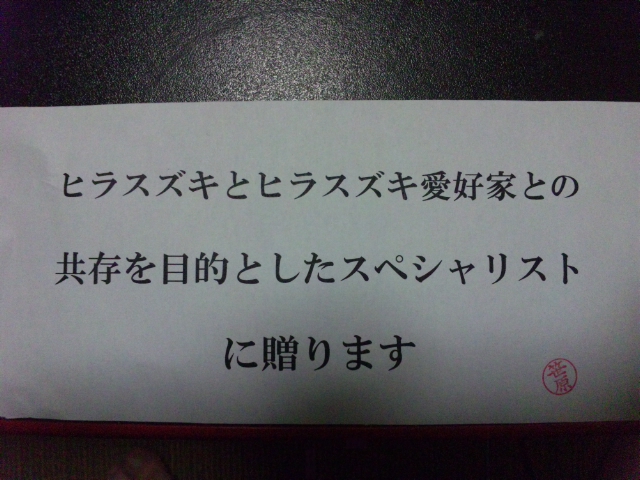 ヒラスズキとヒラスズキ愛好家との
共存を目的としたスペシャリスト
に贈ります
笹原